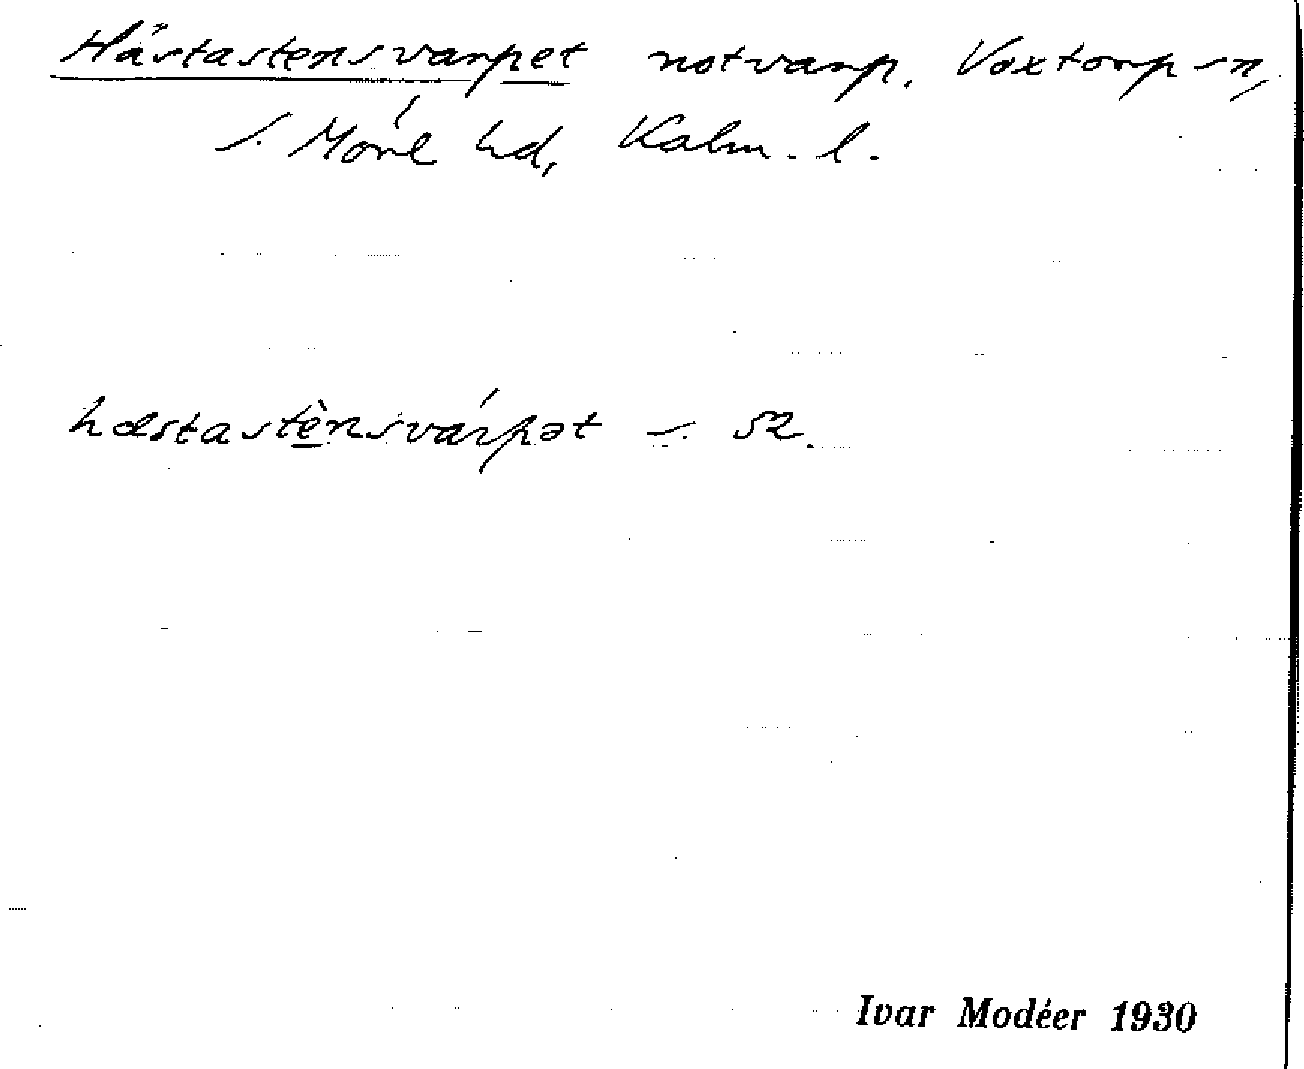 Hästastensvarpet notvarp. Voxtorp sn,
S. Möre hd, Kalm. l.
hæstastènsvárpət s. 52.
Ivar Modéer 1930